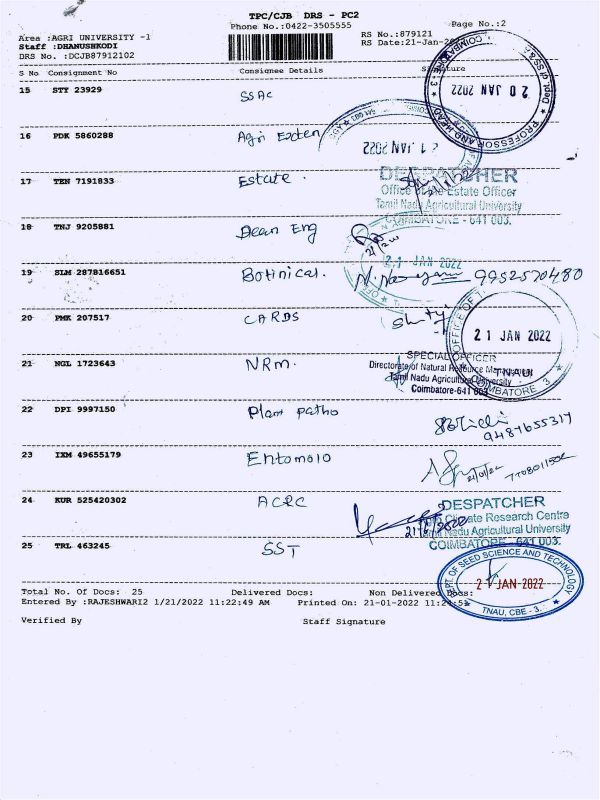 TPC/CJB DRS - PC2
Phone No.:0422-3505555
Page No.:2
Area :AGRI UNIVERSITY -1
RS No.:879121
Staff :DHANUSHKODI
RS Date:21-Jan-
DRS No. :DCJB87912102
S No Consignment No Consignee Details Signature
15 STY 23929 SSAC
20 JAN 2022
PROFESSOR AND HEAD
Dept of SS&
COIMBATORE 3
16 PDK 5860288 Agri Exten
21 JAN 2022
17 TEN 7191833 Estate.
DESPATCHER
Office of the Estate Officer
Tamil Nadu Agricultural University
COIMBATORE - 641 003.
18 TNJ 9205881 Dean Eng
21 JAN 2022
19 SLM 287816651 Botinical. 9952570480
20 PMK 207517 CARDS
OFFICE OF T
21 JAN 2022
TNAU
COIMBATORE 3
21 NGL 1723643 NRM.
SPECIAL OFFICER
Directorate of Natural Resource Management
Tamil Nadu Agricultural University
Coimbatore-641 003
22 DPI 9997150 Plant patho
23 IXM 49655179 Entomolo
21/01/22
24 KUR 525420302 ACRC
21/1/2022
DESPATCHER
Agro Climate Research Centre
Tamil Nadu Agricultural University
COIMBATORE - 641 003.
25 TRL 463245 SST
DEPT. OF SEED SCIENCE AND TECHNOLOGY
21 JAN 2022
TNAU, CBE - 3.
Total No. Of Docs: 25 Delivered Docs: Non Delivered Docs:
Entered By :RAJESHWARI2 1/21/2022 11:22:49 AM Printed On: 21-01-2022
Verified By Staff Signature